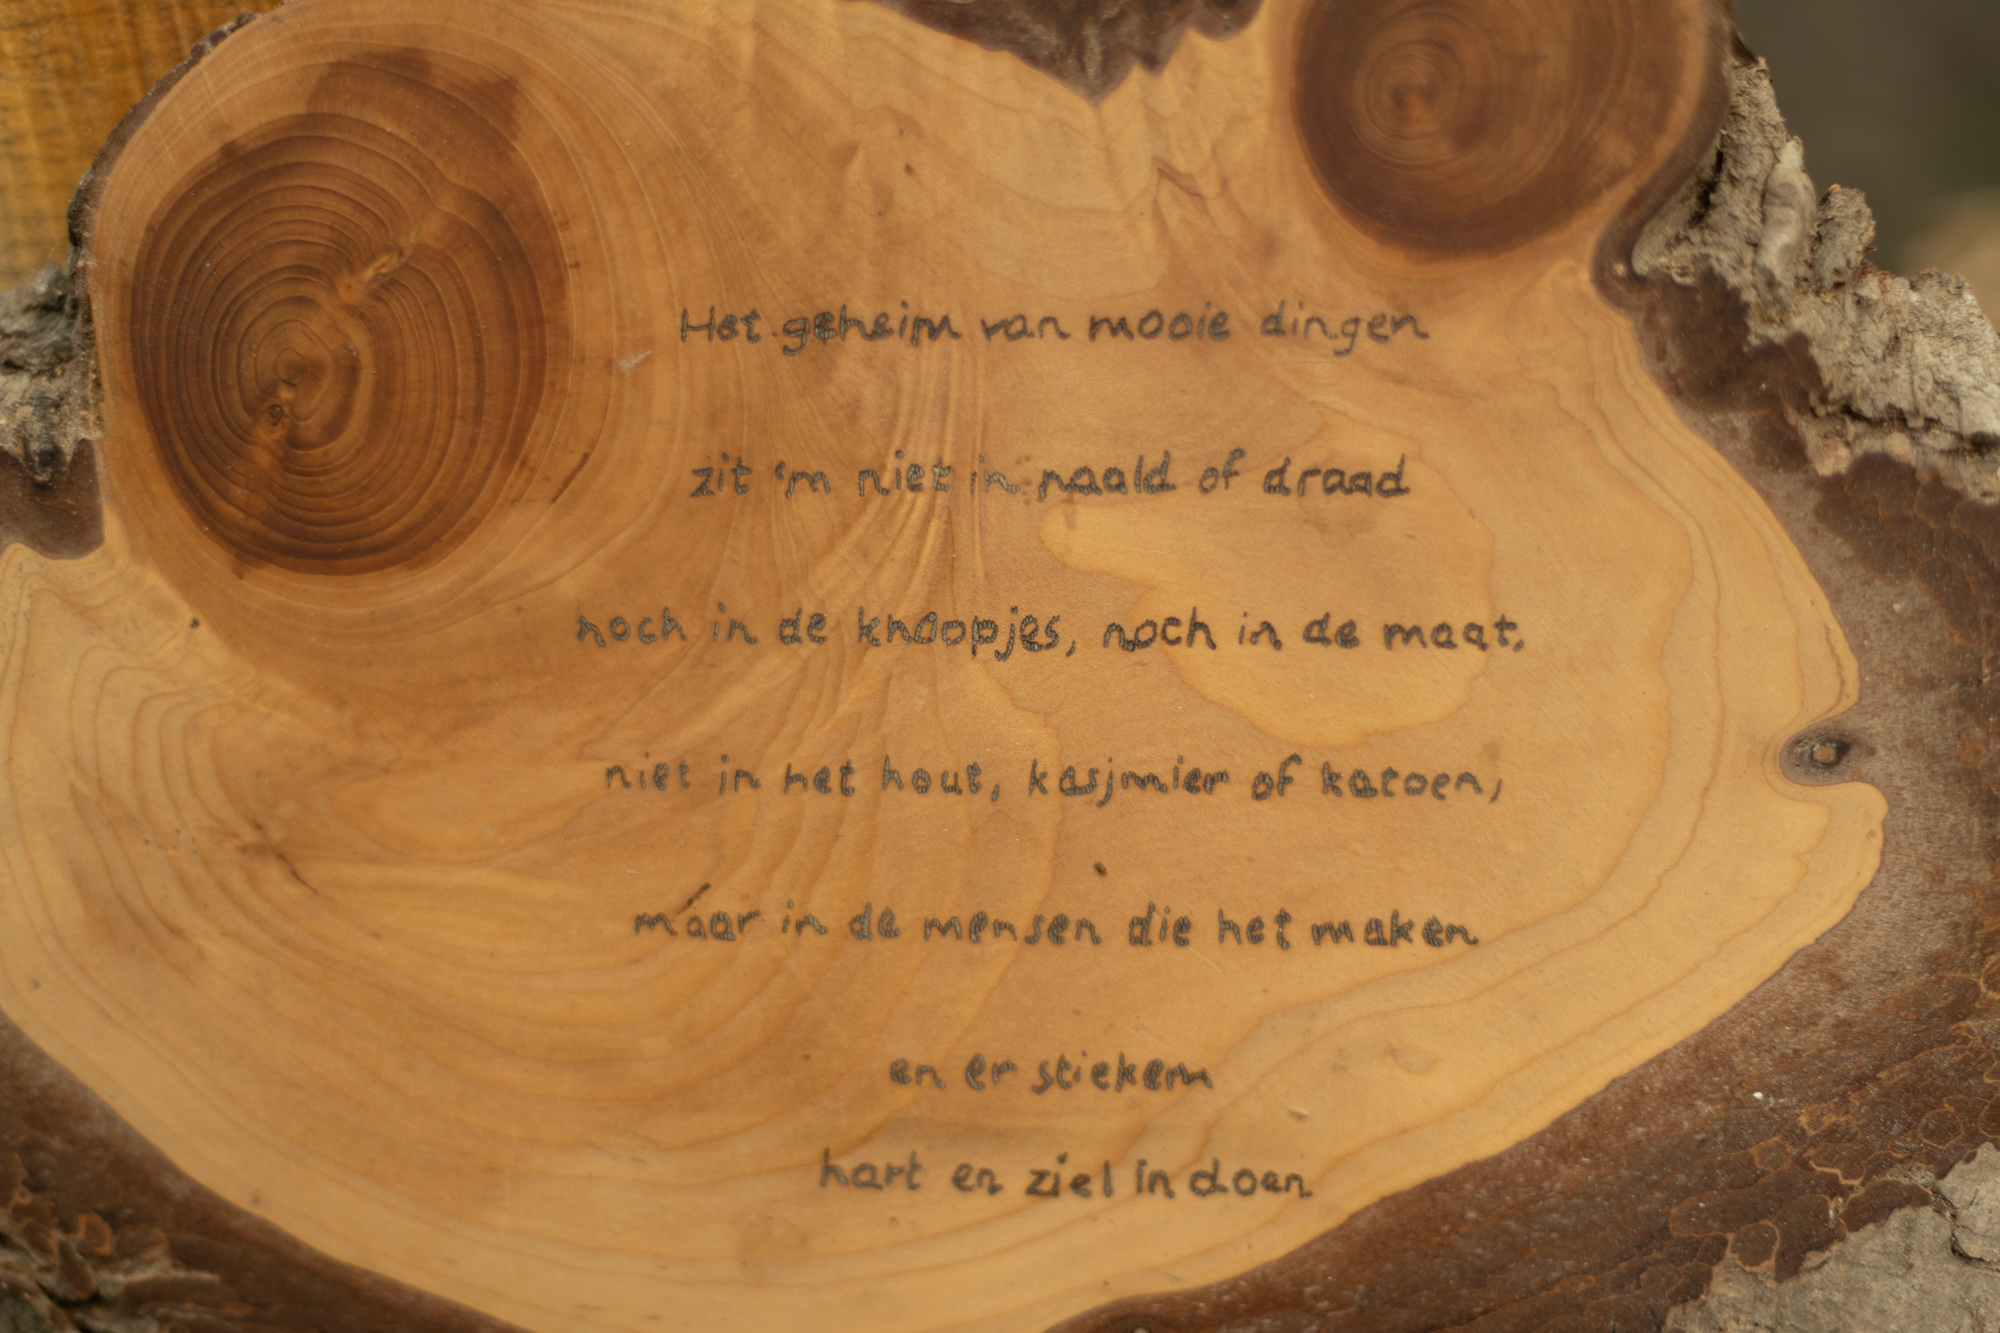 Het geheim van mooie dingen
zit 'm niet in naald of draad
noch in de knoopjes, noch in de maat,
niet in het hout, kasjmier of katoen,
maar in de mensen die het maken
en er stiekem
hart en ziel in doen